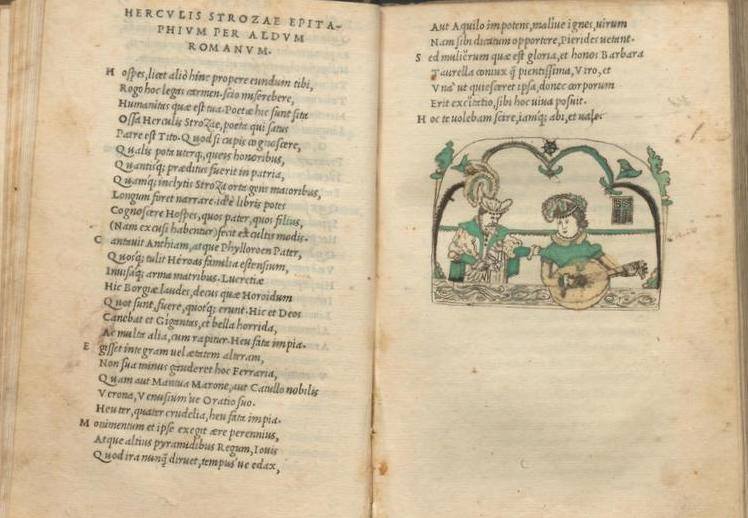 HERCVLIS STROZAE EPITA-
PHIVM PER ALDVM
ROMANVM.
Hospes, licet aliò hinc propere eundum tibi,
Rogo hoc legas carmen. scio miserebere,
Humanitas quæ est tua. Poetæ hic sunt sita
Ossa Herculis Strozae, poeta qui satus
Patre est Tito. Quod si cupis cognoscere,
Qualis poeta uterq;, queis honoribus,
Quantisq; præditus fuerit in patria,
Quamq; inclytis Stroza orta gens maioribus,
Longum foret narrare. id è libris potes
Cognoscere Hospes, quos pater, quos filius,
(Nam excusi habentur) fecit excultis modis.
Cantauit Anthiam, atque Phylloroen Pater,
Quosq; tulit Heroas familia estensium,
Inuisaq; arma matribus. Lucretiæ
Hic Borgiæ laudes, decus quæ Heroidum
Quot sunt, fuere, quotq; erunt. Hic et Deos
Canebat et Gigantas, et bella horrida,
Ac multa alia, cum rapitur. Heu fata impia.
Egisset integram uel ætatem alteram,
Non sua minus gauderet hoc Ferraria,
Quam aut Mantua Marone, aut Catullo nobilis
Verona, Venusium'ue Oratio suo.
Heu ter, quater crudelia, heu fata impia.
Monimentum et ipse exegit ære perennius,
Atque altius pyramidibus Regum, Iouis
Quod ira nunq̃ diruet, tempus'ue edax,
Aut Aquilo impotens, maliue ignes, uirum
Nam sibi dicatum opportere, Pierides uetant.
Sed mulierum quæ est gloria, et honos Barbara
Taurella coniux q̃ pientissima, Viro, et
Vna ut quiesceret ipsa, donec corporum
Erit excitatio, sibi hoc uiua posuit.
Hoc te uolebam scire, iamq; abi, et uale.